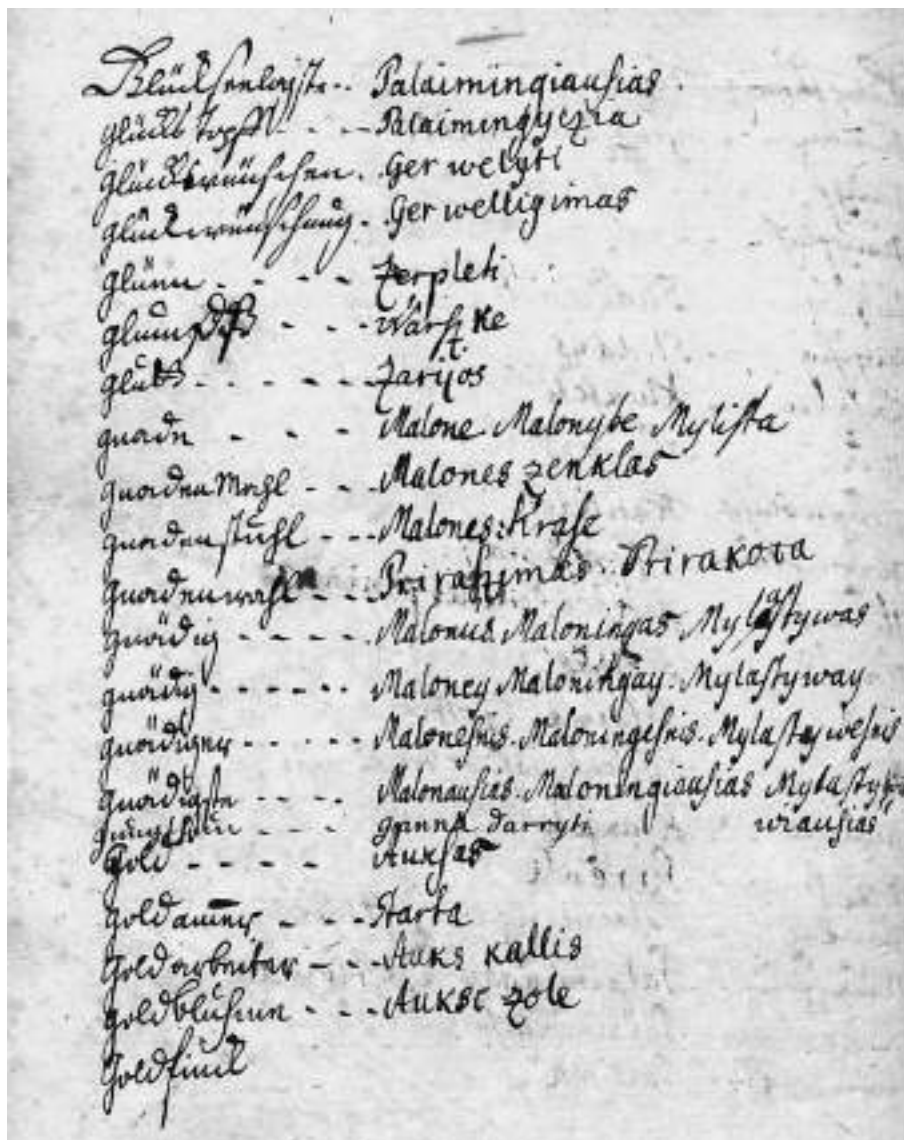 Glückseeligste -- Palaimingiausias
Glücks topff - - - Palaimingyczia
Glückwünschen - Ger welyti
Glückwünschung - Ger welligimas
Glüen - - - - Zerpleti
- - - Warszke
Glutt - - - - - Zarijos
Gnade - - - Malone. Malonybe Mylista
Gnaden Mahl - - - Malones zenklas
Gnadenstuhl - - - Malones Krase
Gnadenwahl - - - Priraszimas. Prirakota
Gnädig - - - - - Malonus. Maloningas. Mylastywas
gnädig - - - - - - Maloney Maloningay. Mylastyway
gnädiger - - - - - Malonesnis. Maloningesnis. Mylastywesnis
Gnädigste - - - - Malonausias. Maloningiausias Mylasty
- - - - Ganna darryti wiausias
Gold - - - - - Auksas
Goldammer - - - Starta
Goldarbeiter - - - Auks kallis
Goldbluhme - - - Aukse zole
Goldfinck